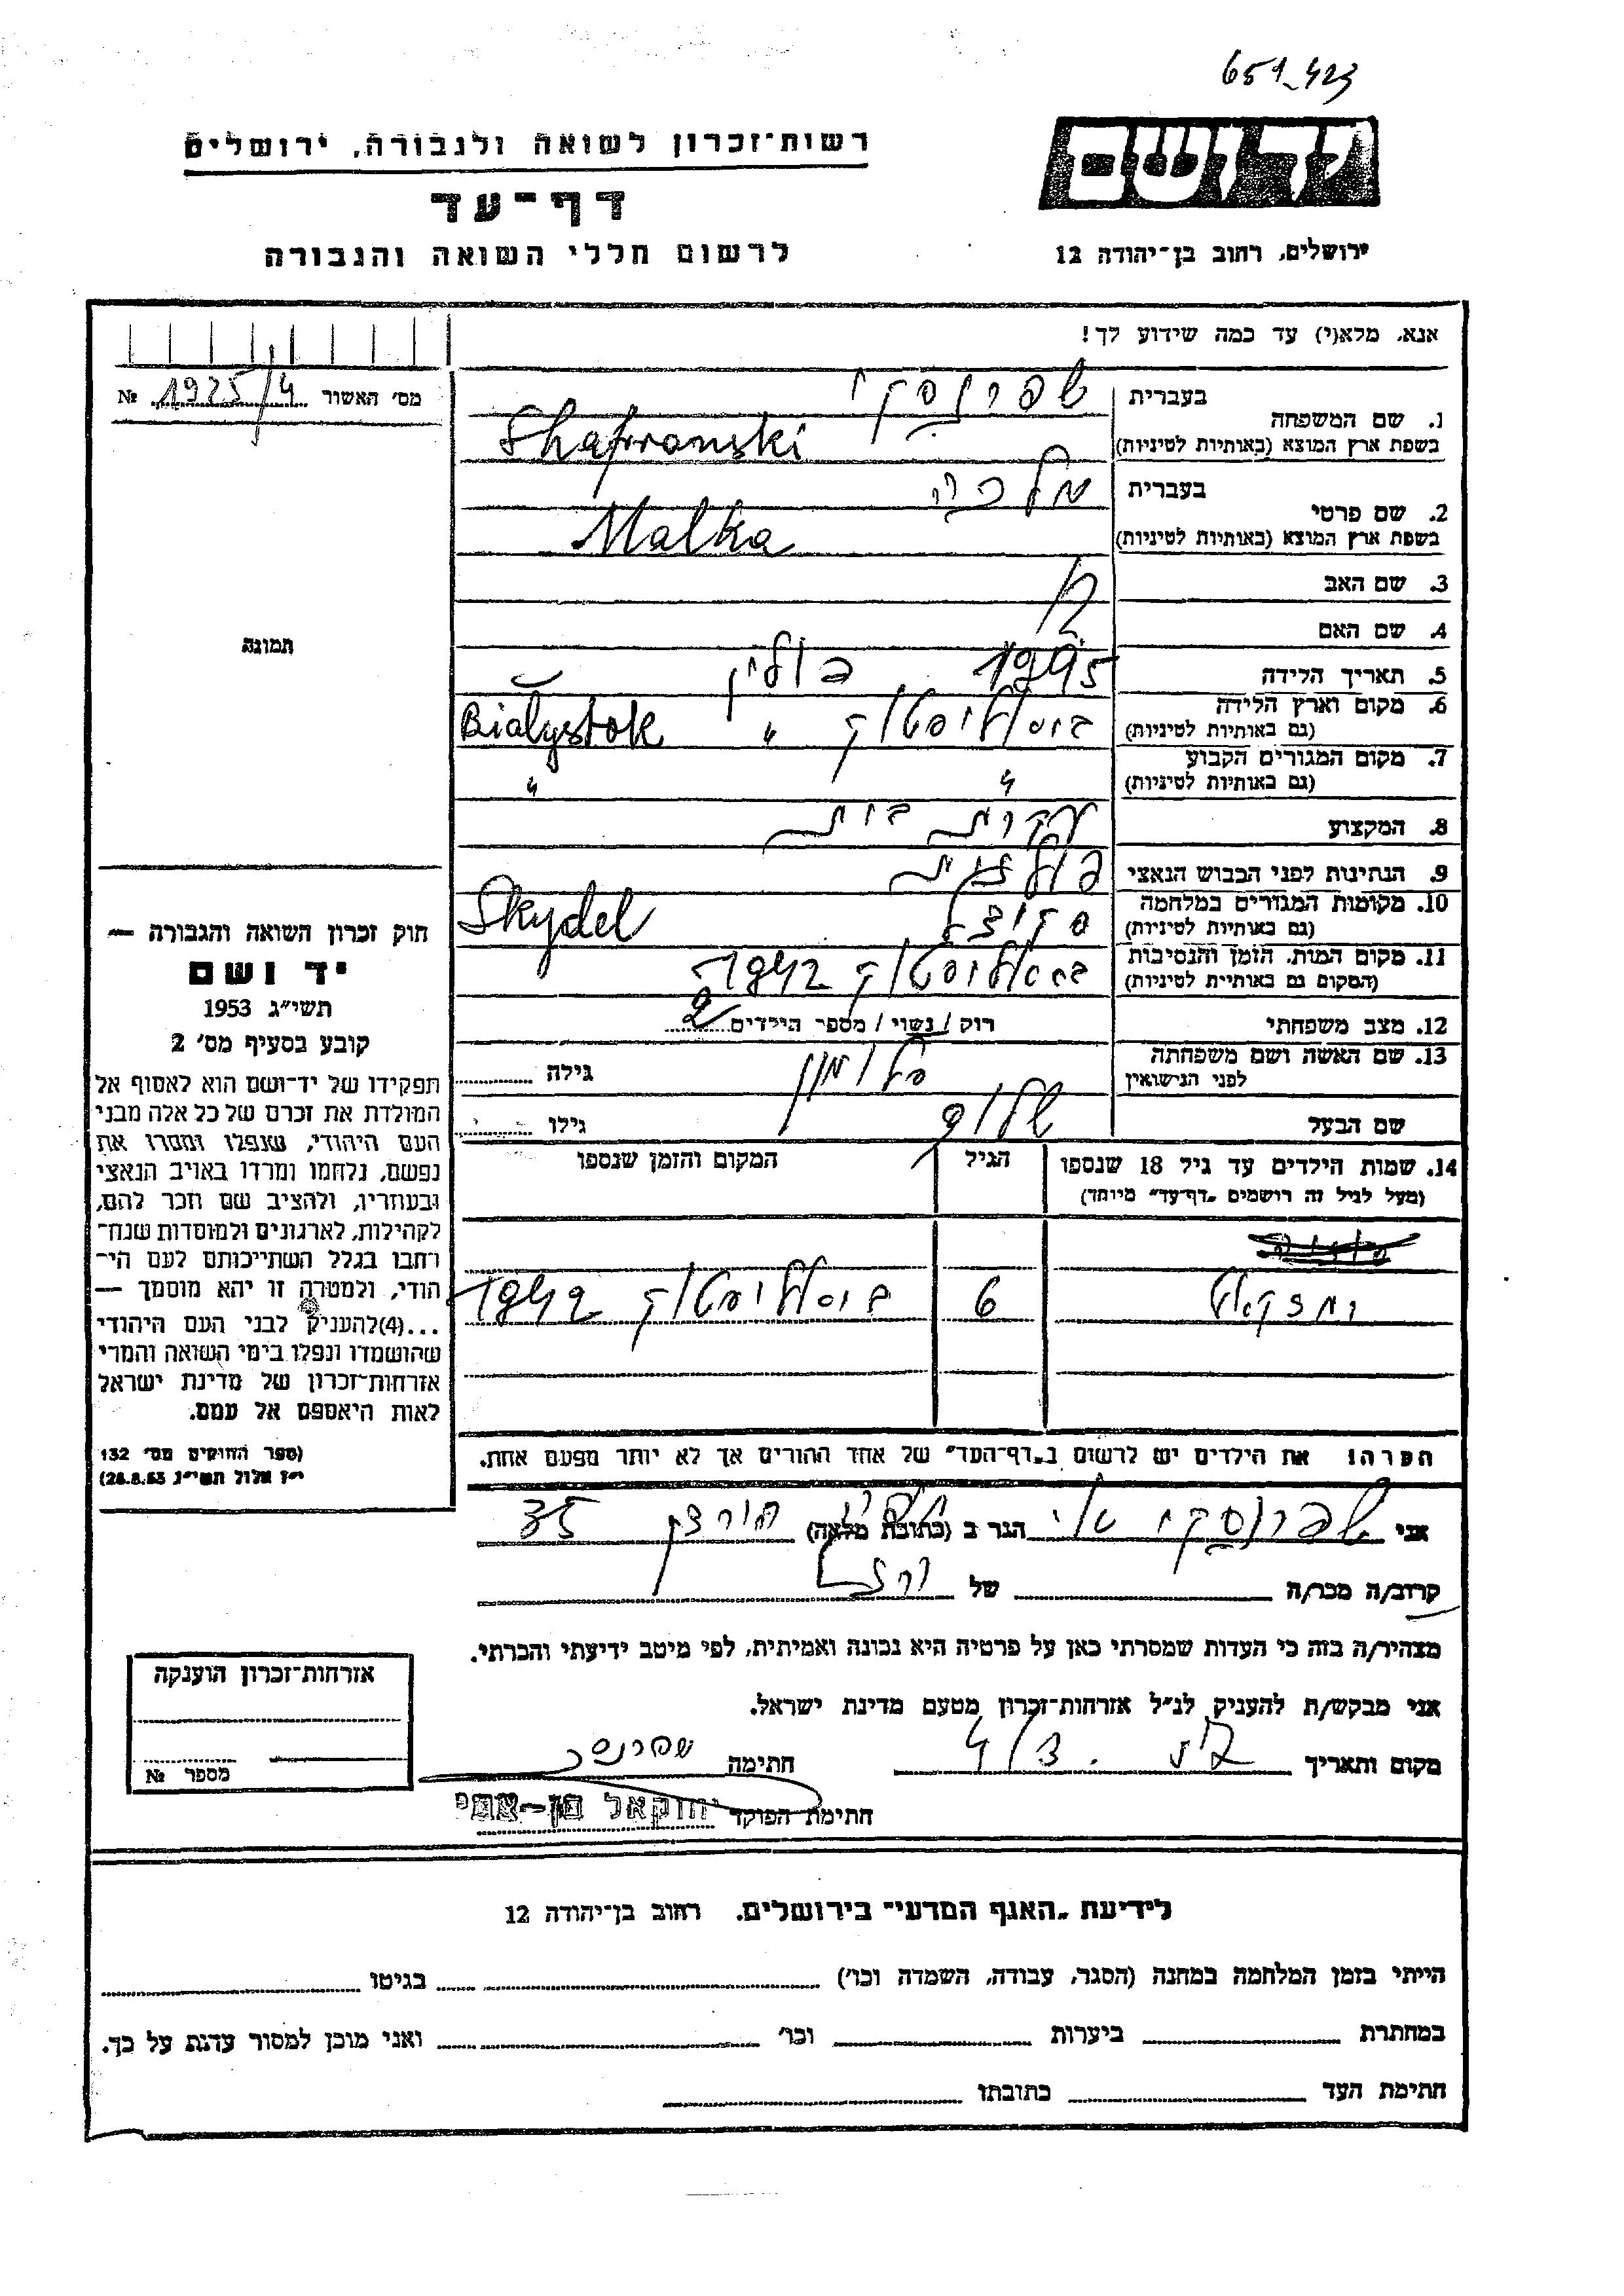 651_423
יד ושם
רשות־זכרון לשואה ולגבורה, ירושלים
דף־עד
לרשום חללי השואה והגבורה
ירושלים, רחוב בן־יהודה 12
אנא, מלא(י) עד כמה שידוע לך!
מס׳ האשור 1925/4 №
בעברית שפרנסקי
1. שם המשפחה
בשפת ארץ המוצא (באותיות לטיניות) Shafranski
בעברית מלכה
2. שם פרטי
בשפת ארץ המוצא (באותיות לטיניות) Malka
3. שם האב
4. שם האם
תמונה
5. תאריך הלידה 1895 פולין
6. מקום וארץ הלידה
(גם באותיות לטיניות) ביאליסטוק " Białystok
7. מקום המגורים הקבוע
(גם באותיות לטיניות) " "
8. המקצוע עקרת בית
9. הנתינות לפני הכבוש הנאצי פולנית
10. מקומות המגורים במלחמה
(גם באותיות לטיניות) Skydel
11. מקום המות, הזמן והנסיבות
(המקום גם באותיית לטיניות) ביאליסטוק 1942
12. מצב משפחתי רוק / נשוי / מספר הילדים 2
13. שם האשה ושם משפחתה
לפני הנישואין סלומון גילה
שם הבעל גילו
14. שמות הילדים עד גיל 18 שנספו הגיל המקום והזמן שנספו
(מעל לגיל זה רושמים „דף־עד״ מיוחד)
יחזקאל 6 ביאליסטוק 1942
הערה: את הילדים יש לרשום ב„דף־העד״ של אחד ההורים אך לא יותר מפעם אחת.
חוק זכרון השואה והגבורה —
יד ושם
תשי״ג 1953
קובע בסעיף מס׳ 2
תפקידו של יד־ושם הוא לאסוף אל
המולדת את זכרם של כל אלה מבני
העם היהודי, שנפלו ומסרו את
נפשם, נלחמו ומרדו באויב הנאצי
ובעוזריו, ולהציב שם וזכר להם,
לקהילות, לארגונים ולמוסדות שנח־
רחבו בגלל השתייכותם לעם הי־
הודי, ולמטרה זו יהא מוסמך —
...(4)להעניק לבני העם היהודי
שהושמדו ונפלו בימי השואה והמרי
אזרחות־זכרון של מדינת ישראל
לאות היאספם אל עמם.
(ספר החוקים מס׳ 132
י״ז אלול תשי״ג 28.8.53)
אני שפרנסקי הגר ב (כתובת מלאה) 35
קרוב/ה מכר/ה של
מצהיר/ה בזה כי העדות שמסרתי כאן על פרטיה היא נכונה ואמיתית, לפי מיטב ידיעתי והכרתי.
אני מבקש/ת להעניק לנ״ל אזרחות־זכרון מטעם מדינת ישראל.
מקום ותאריך חתימה
חתימת הפוקד יחזקאל בן־עמי
אזרחות־זכרון הוענקה
מספר №
לידיעת „האגף המדעי״ בירושלים, רחוב בן־יהודה 12
הייתי בזמן המלחמה במחנה (הסגר, עבודה, השמדה וכו׳) בגיטו
במחתרת ביערות וכו׳ ואני מוכן למסור עדות על כך.
חתימת העד כתובתו